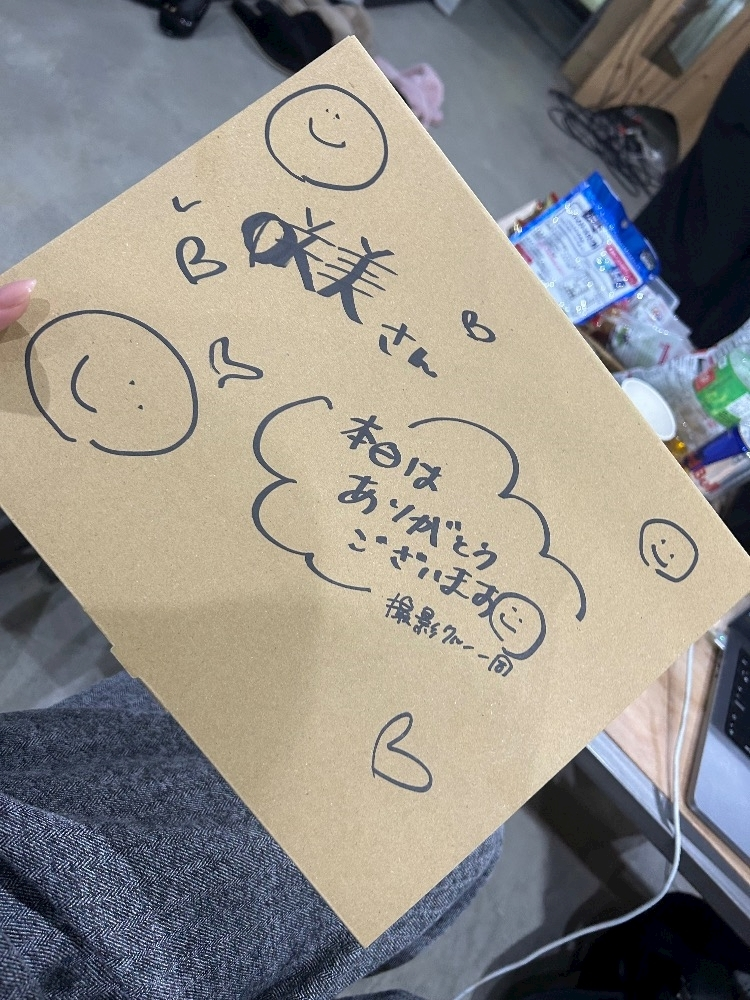 咲美
さん
本日は
ありがとう
ございます
撮影クルー一同